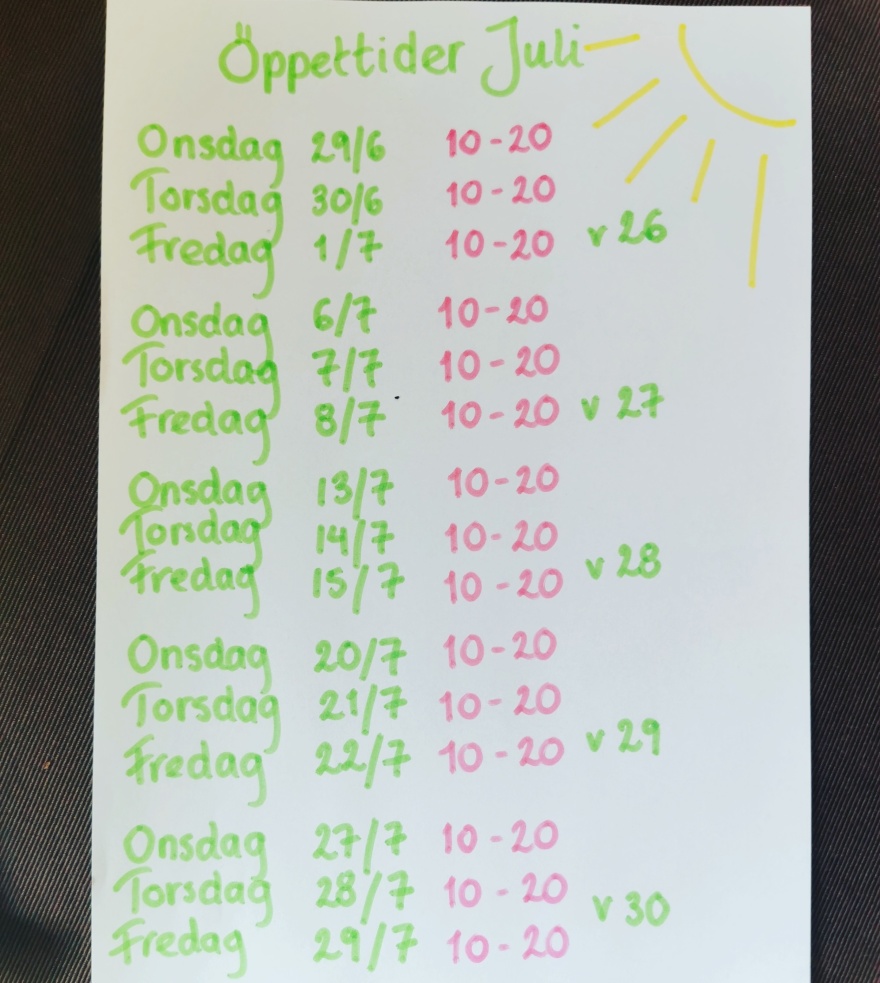 Öppettider Juli
Onsdag 29/6 10-20
Torsdag 30/6 10-20
Fredag 1/7 10-20 v 26
Onsdag 6/7 10-20
Torsdag 7/7 10-20
Fredag 8/7 10-20 v 27
Onsdag 13/7 10-20
Torsdag 14/7 10-20
Fredag 15/7 10-20 v 28
Onsdag 20/7 10-20
Torsdag 21/7 10-20
Fredag 22/7 10-20 v 29
Onsdag 27/7 10-20
Torsdag 28/7 10-20
Fredag 29/7 10-20 v 30